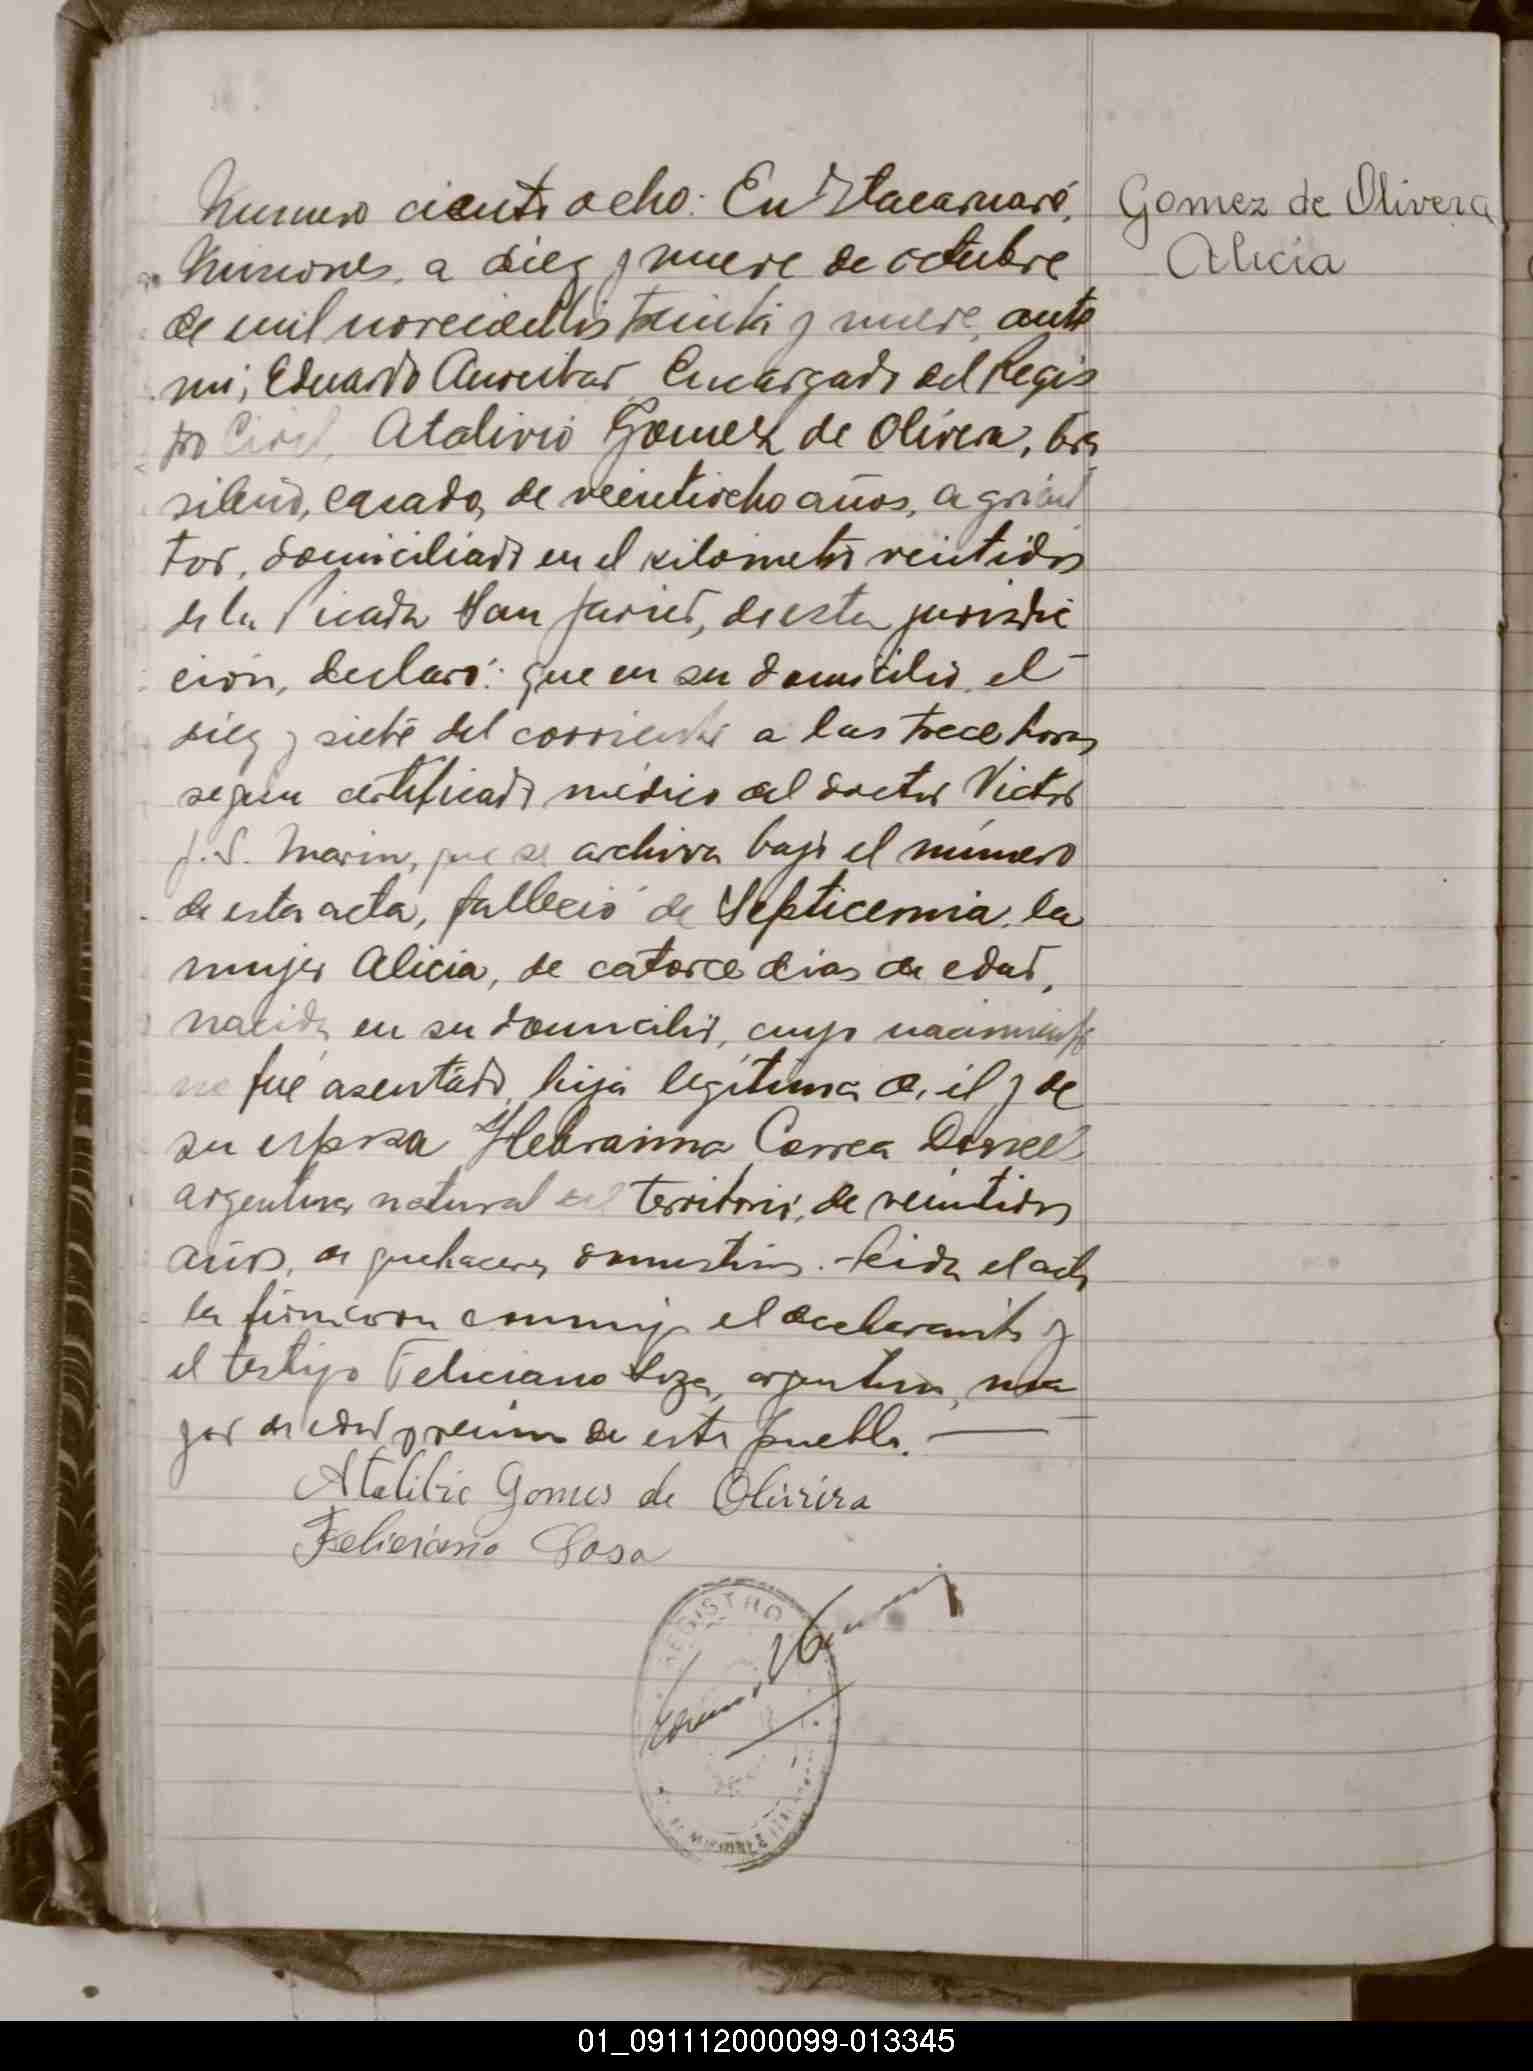 Numero ciento ocho: En Itacaruaré,
Gomez de Olivera
Alicia
Misiones, a diez y nueve de octubre
de mil novecientos treinta y nueve, ante
mi, Eduardo Encargado del Regis
tro Civil, Atalivio Gomez de Olivera, bra
sileño, casado, de veintiocho años, agricul
tor, domiciliado en el kilometro veintidos
de la Picada San Javier, de esta jurisdic
ción, declaró: que en su domicilio, el
diez y siete del corriente a las trece horas
segun certificado médico del doctor Victor
J. S. Marin, que se archiva bajo el número
de esta acta, falleció de Septicemia, la
mujer Alicia, de catorce dias de edad,
nacida en su domicilio, cuyo nacimiento
no fué asentado, hija legítima de él y de
su esposa Correa
argentina, natural del territorio, de veintidos
años, de quehaceres domesticos. Leida el acta
la firmaron conmigo el declarante y
el testigo Feliciano Soza, argentino, ma
yor de edad y vecino de este pueblo. —
Atalibio Gomes de Oliveira
Feliciano Sosa
REGISTRO
MISIONES
01_091112000099-013345